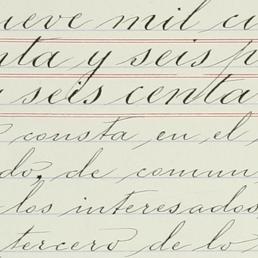 ueve mil ci
nta y seis p
y seis centa
consta en el
do, de comun
los interesados,
tercero de lo